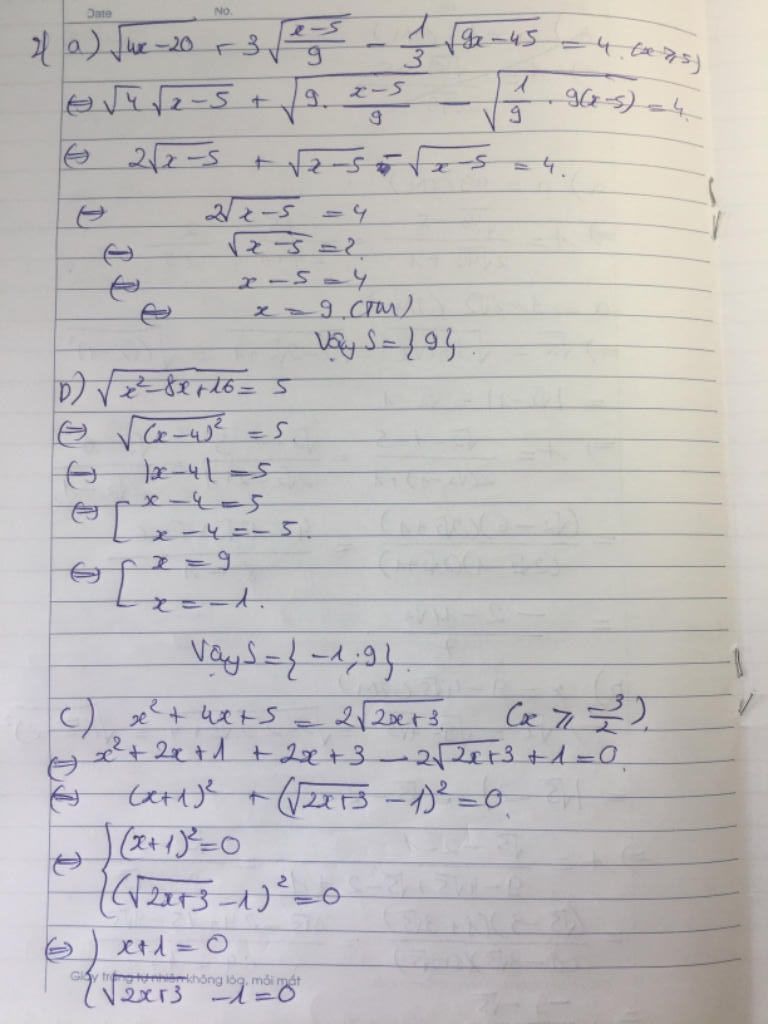 Date No.
2/ a) √(4x-20) + 3√((x-5)/9) - 1/3 √(9x-45) = 4. (x ≥ 5)
⇔ √4 √(x-5) + √(9. (x-5)/9) - √(1/9 . 9(x-5)) = 4.
⇔ 2√(x-5) + √(x-5) - √(x-5) = 4.
⇔ 2√(x-5) = 4
⇔ √(x-5) = 2.
⇔ x - 5 = 4
⇔ x = 9. (TM)
Vậy S = {9}.
b) √(x²-8x+16) = 5
⇔ √((x-4)²) = 5.
⇔ |x-4| = 5
⇔ [ x - 4 = 5
x - 4 = -5.
⇔ [ x = 9
x = -1.
Vậy S = {-1; 9}.
c) x² + 4x + 5 = 2√(2x+3) (x ≥ -3/2).
⇔ x² + 2x + 1 + 2x + 3 - 2√(2x+3) + 1 = 0.
⇔ (x+1)² + (√(2x+3) - 1)² = 0.
⇔ { (x+1)² = 0
(√(2x+3) - 1)² = 0
⇔ { x + 1 = 0
Giấy trắng tự nhiên không lóa, mỏi mắt
√(2x+3) - 1 = 0